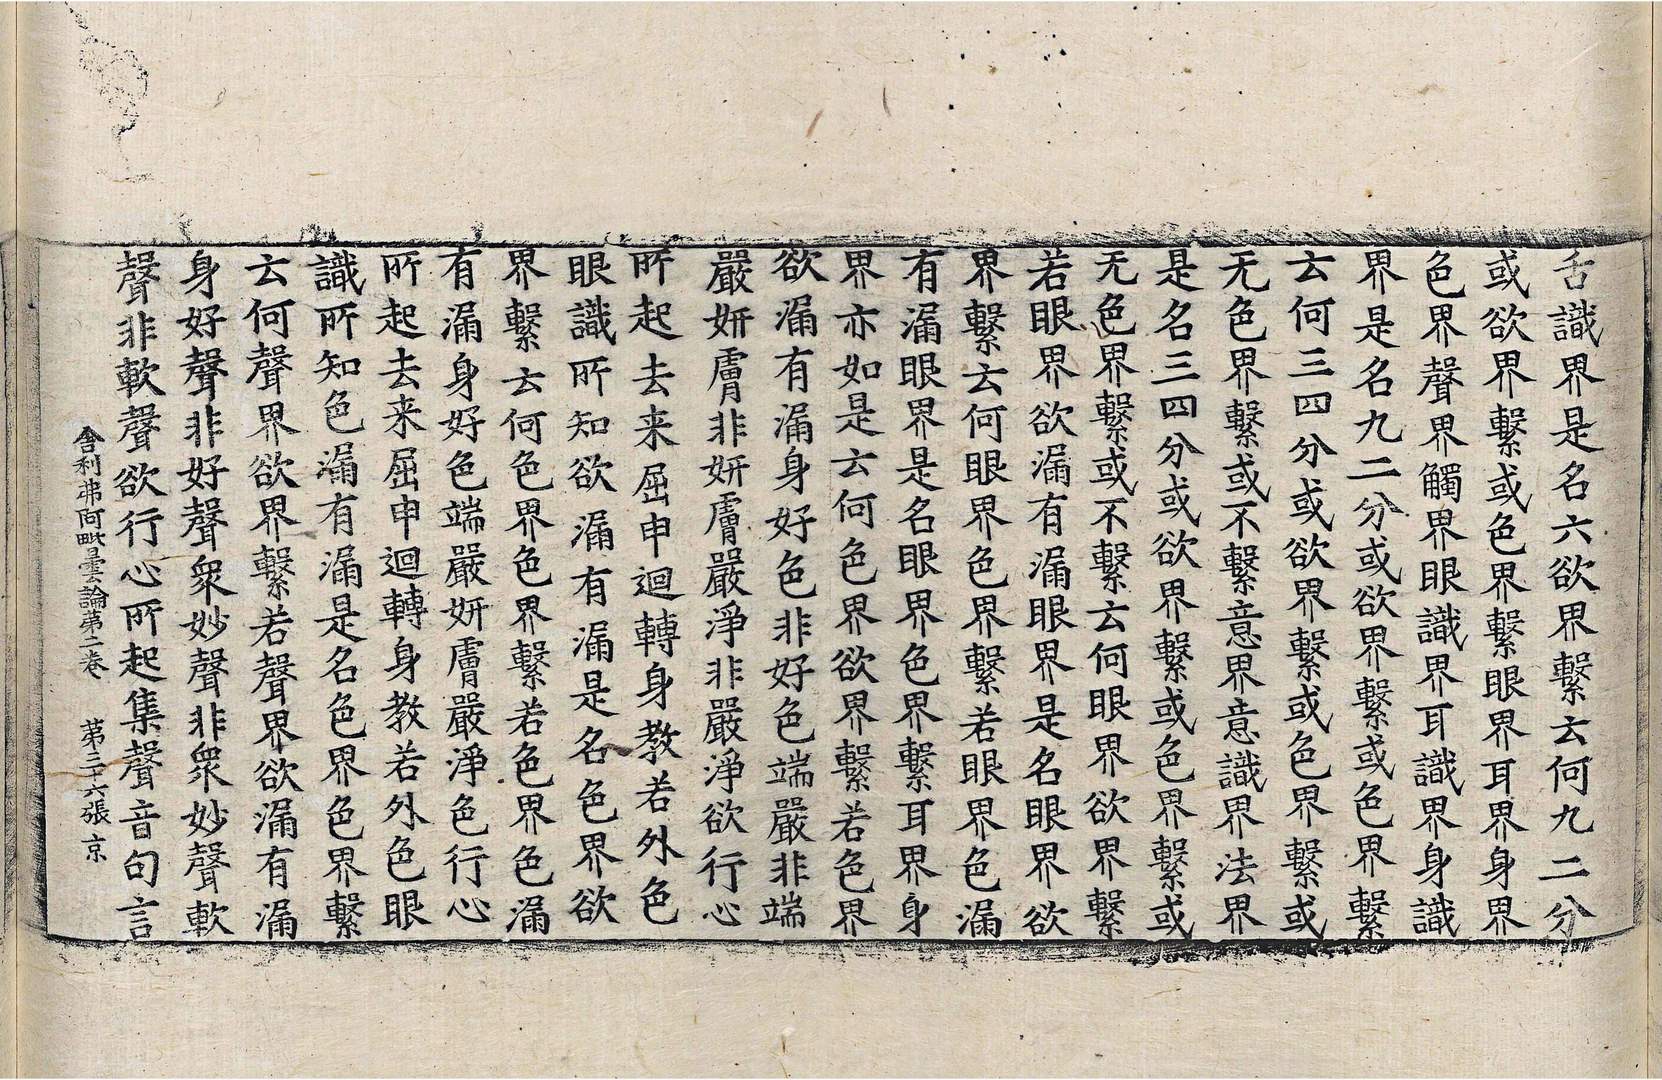 舌識界是名六欲界繫云何九二分
或欲界繫或色界繫眼界耳界身界
色界聲界觸界眼識界耳識界身識
界是名九二分或欲界繫或色界繫
云何三四分或欲界繫或色界繫或
无色界繫或不繫意界意識界法界
是名三四分或欲界繫或色界繫或
无色界繫或不繫云何眼界欲界繫
若眼界欲漏有漏眼界是名眼界欲
界繫云何眼界色界繫若眼界色漏
有漏眼界是名眼界色界繫耳界身
界亦如是云何色界欲界繫若色界
欲漏有漏身好色非好色端嚴非端
嚴妍膚非妍膚嚴淨非嚴淨欲行心
所起去来屈申迴轉身教若外色
眼識所知欲漏有漏是名色界欲
界繫云何色界色界繫若色界色漏
有漏身好色端嚴妍膚嚴淨色行心
所起去来屈申迴轉身教若外色眼
識所知色漏有漏是名色界色界繫
云何聲界欲界繫若聲界欲漏有漏
身好聲非好聲衆妙聲非衆妙聲軟
聲非軟聲欲行心所起集聲音句言
舍利弗阿毗曇論第二卷 第三十六張 京